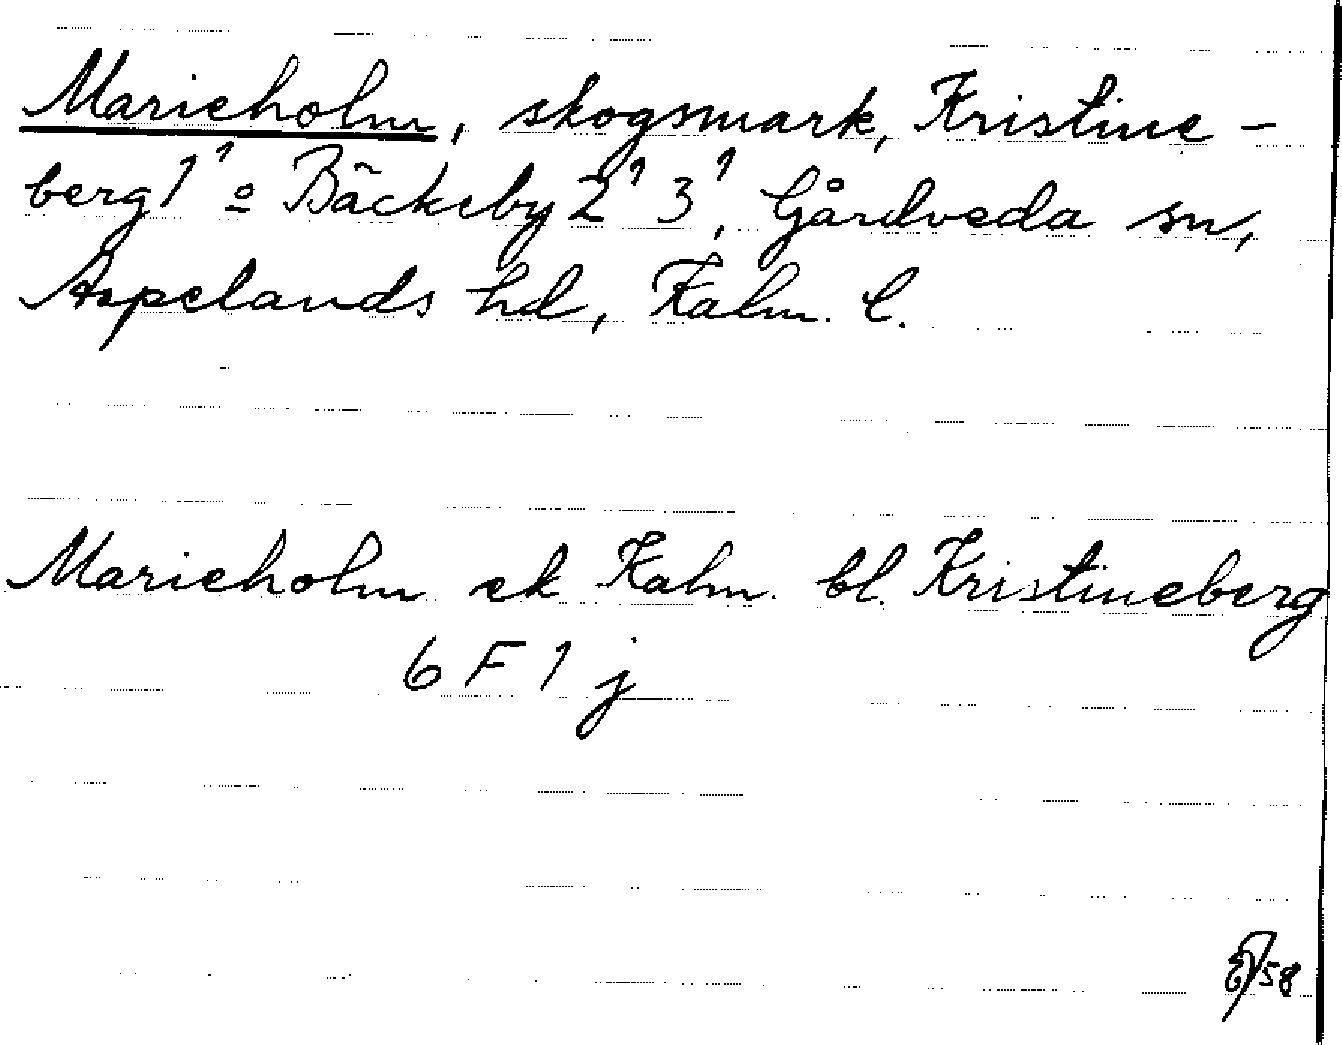 Marieholm, skogsmark, Kristine-
berg 1¹ o Bäckeby 2¹ 3¹, Gårdveda sn,
Aspelands hd, Kalm. l.
Marieholm ek Kalm. bl. Kristineberg
6 F 1 j
58